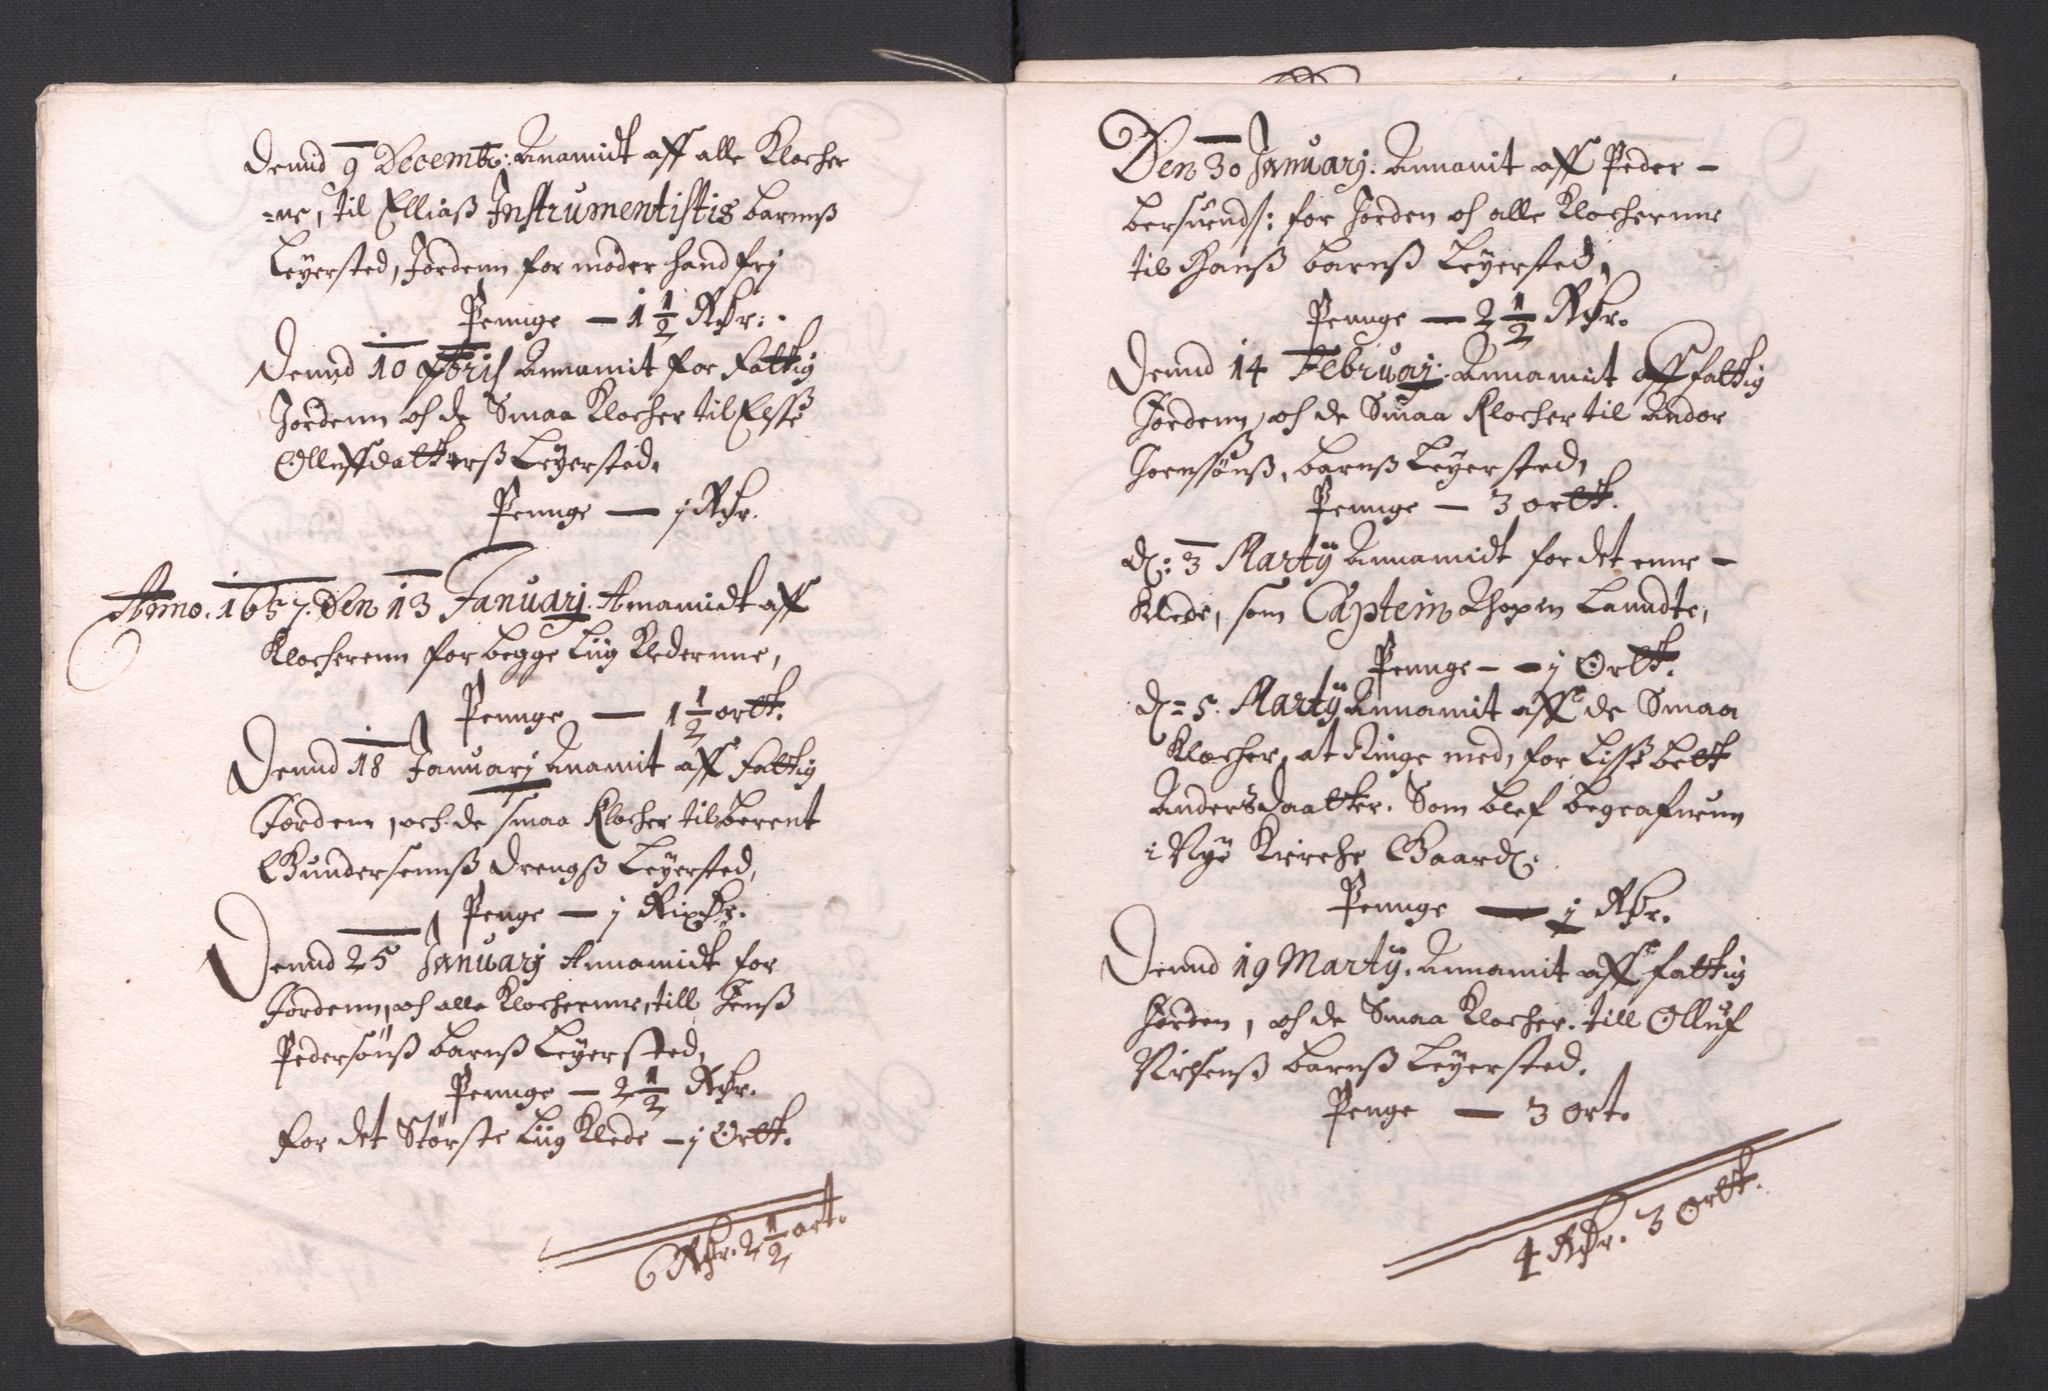 Dennd 9 Decemb: Anamidt aff alle Klocher
=ne, til Elliaß Instrumentistis barnß
Leyersted, Jordenn for moder hand frj
Pennge — 1 1/2 Rdr:
Dennd 10 Xbris Annamit for Fattig
Jordenn och de Smaa Klocher til Elsse
Olluffsdatterß Leyersted.
Pennge — j Rdr.
Anno. 1657. Den 13 Januarj. Anamidt aff
Klocherenn for begge Liig Klederne,
Pennge — 1 1/2 ortt.
Dennd 18 Januarj Anamit aff Fattig
Jordenn, och de smaa Klocher til Berent
Gundersennß drengß Leyersted,
Penge — j Rixdr.
Dennd 25 Januarj Annamidt for
Jordenn, och alle Klocherne, till Jenß
Pedersönß barnß Leyersted,
Pennge — 2 1/2 Rdr.
for det Störste Liig Klede — j Ortt.
6 Rdr. 2 1/2 ort.
Den 30 Januarj: Annamit aff Peder —
for Jorden och alle Klocherne
til Hanß barnß Leyersted,
Pennge — 2 1/2 Rdr.
Dennd 14 Februarj. Annamit aff fattig
Jordenn, och de Smaa Klocher til Andor
Joenssönß, barnß Leyersted,
Pennge — 3 ortt.
d: 3 Martij Annamidt for det enne —
Klede, som Captein Lanndte,
Pennge — j Ortt.
d= 5. Martij Annamit aff de Smaa
Klocher, at Ringe med, for Lissebett
Andersdaatter. Som blef begrafuenn
i Nye Kirche Gaard:
Pennge — j Rdr.
Dennd 19 Martij. Annamit aff fattig
Jorden, och de Smaa Klocher. till Olluf
Nielsenß barnß Leyersted.
Penge — 3 ort.
4 Rdr. 3 Ortt.